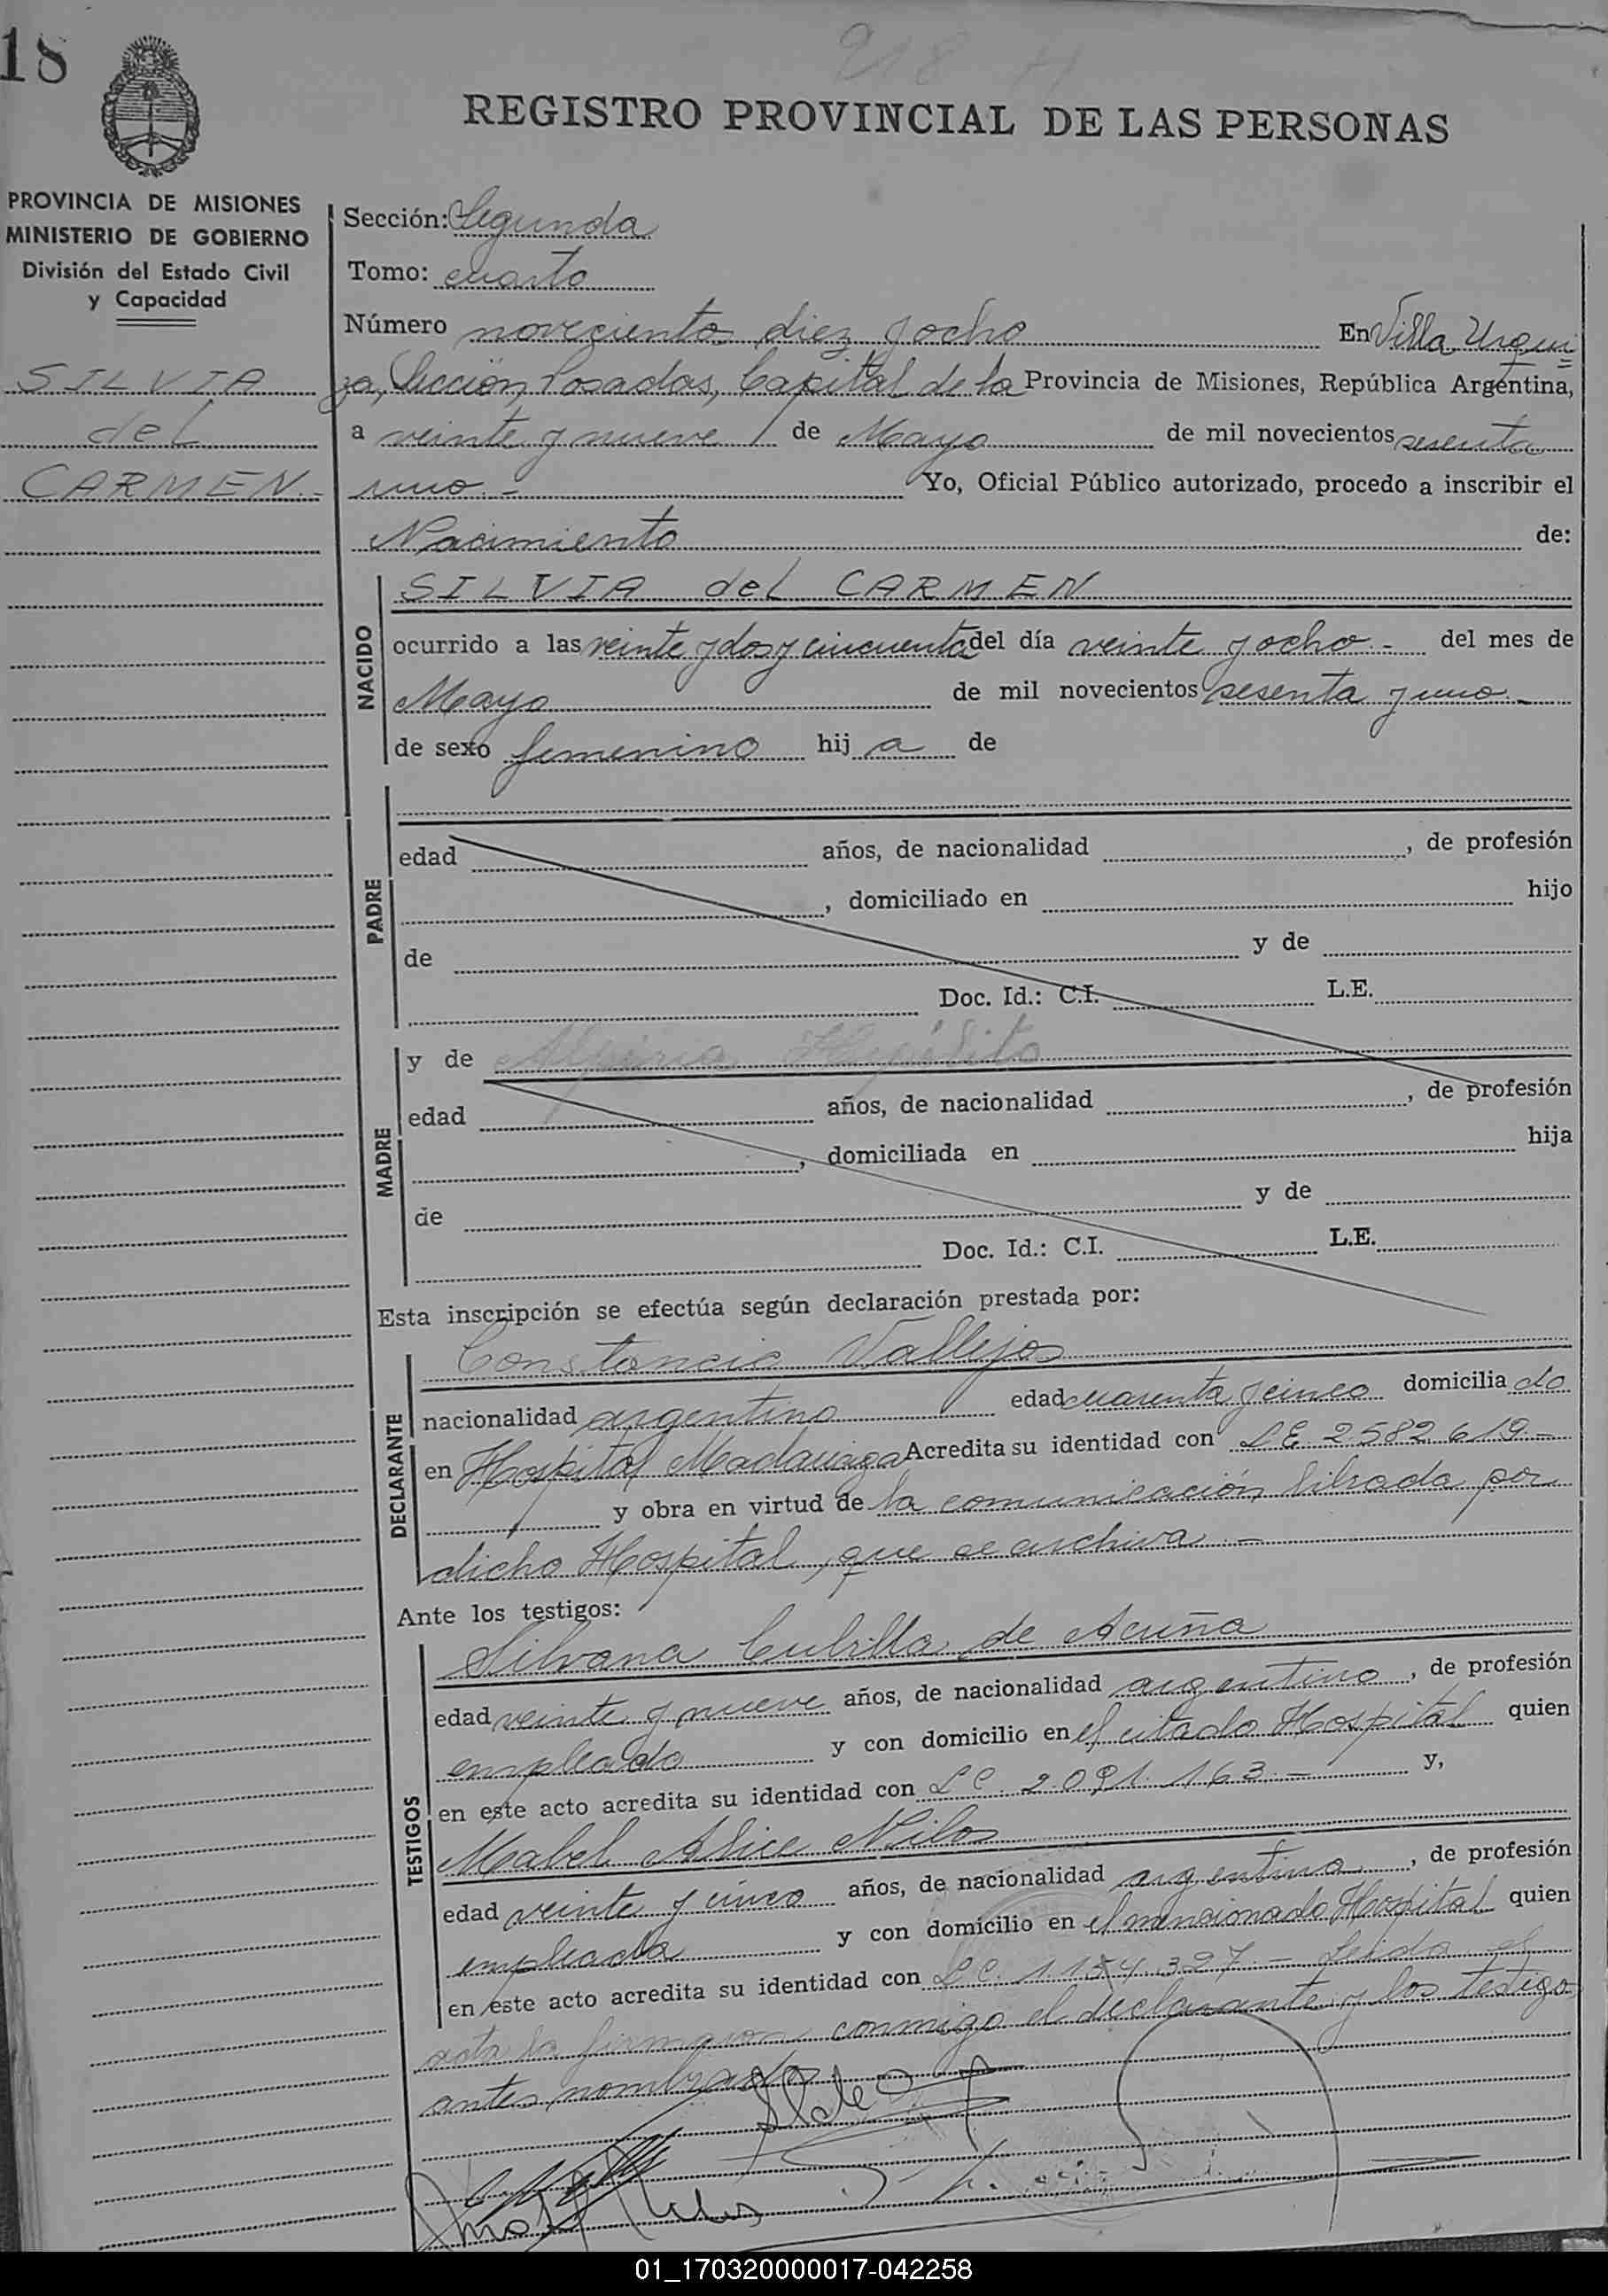 18
918
REGISTRO PROVINCIAL DE LAS PERSONAS
PROVINCIA DE MISIONES
MINISTERIO DE GOBIERNO
División del Estado Civil
y Capacidad
SILVIA
del
CARMEN.-
Sección: Segunda
Tomo: cuarto
Número novecientos diez y ocho En Villa Urqui
za, Sección Posadas, Capital de la Provincia de Misiones, República Argentina,
a veinte y nueve de Mayo de mil novecientos sesenta
uno.- Yo, Oficial Público autorizado, procedo a inscribir el
Nacimiento de:
NACIDO
SILVIA del CARMEN
ocurrido a las veinte y dos y cincuenta del día veinte y ocho.- del mes de
Mayo de mil novecientos sesenta y uno.-
de sexo femenino hij a de
PADRE
edad años, de nacionalidad , de profesión
, domiciliado en hijo
de y de
Doc. Id.: C.I. L.E.
MADRE
y de
edad años, de nacionalidad , de profesión
, domiciliada en hija
de y de
Doc. Id.: C.I. L.E.
Esta inscripción se efectúa según declaración prestada por:
DECLARANTE
Constancio Vallejos
nacionalidad argentino edad cuarenta y cinco domicilia do
en Hospital Madariaga Acredita su identidad con L E 2582619.-
y obra en virtud de la comunicación librada por
dicho Hospital, que se archiva.-
Ante los testigos:
TESTIGOS
Silvana Cubilla de Acuña
edad veinte y nueve años, de nacionalidad argentino, de profesión
empleado y con domicilio en el citado Hospital quien
en este acto acredita su identidad con L C. 2.091.163.- y,
Mabel Alice Nilos
edad veinte y cinco años, de nacionalidad argentina, de profesión
empleada y con domicilio en el mencionado Hospital quien
en este acto acredita su identidad con L C. 1.154.327.- Leida el
acta la firmaron conmigo el declarante y los testigos
antes nombrados
01_170320000017-042258